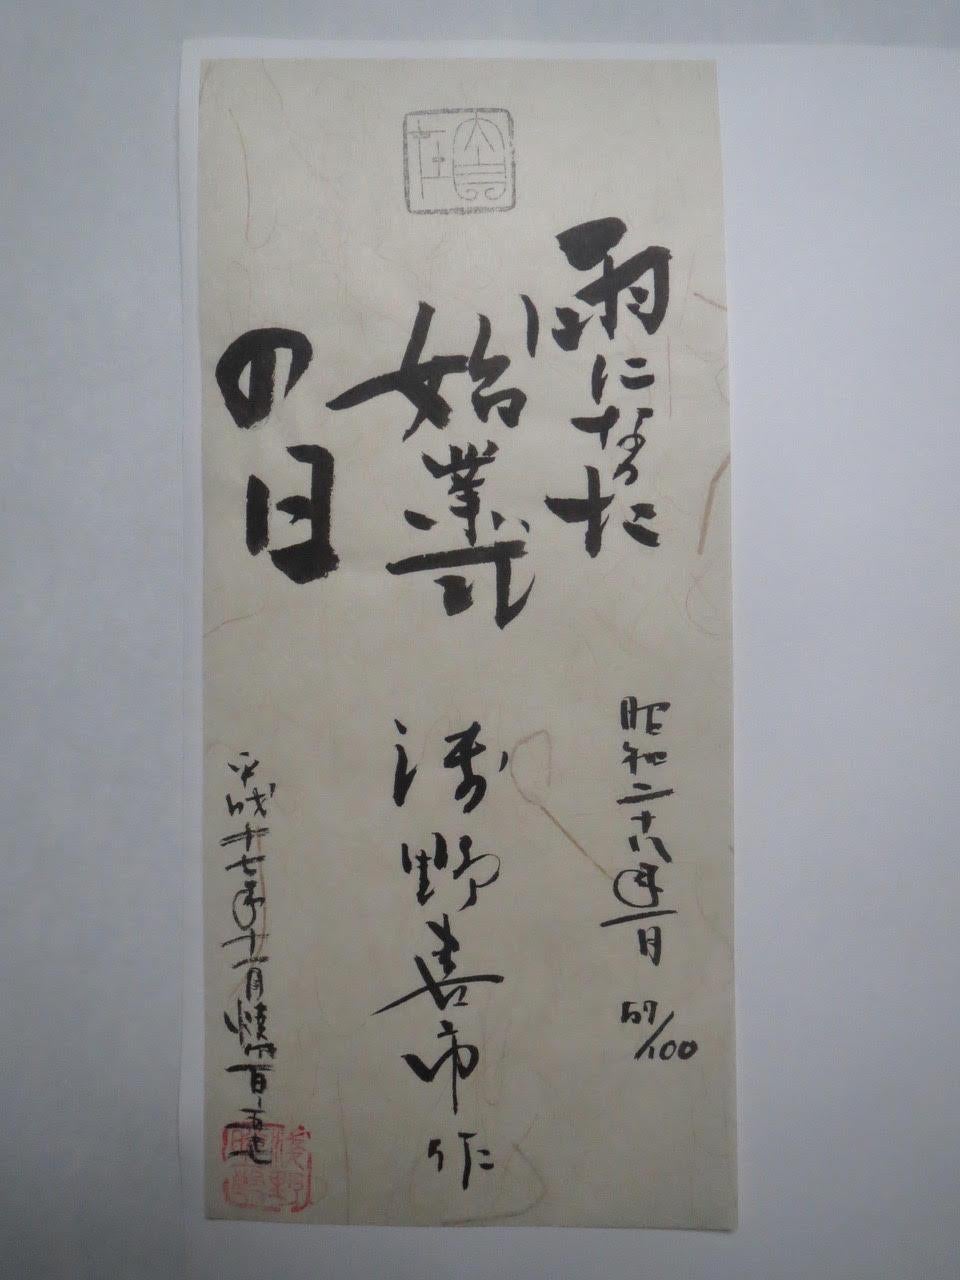 雨になった
始業式
の日
昭和二十八年一月 57/100
浅野喜市 作
平成十七年十一月